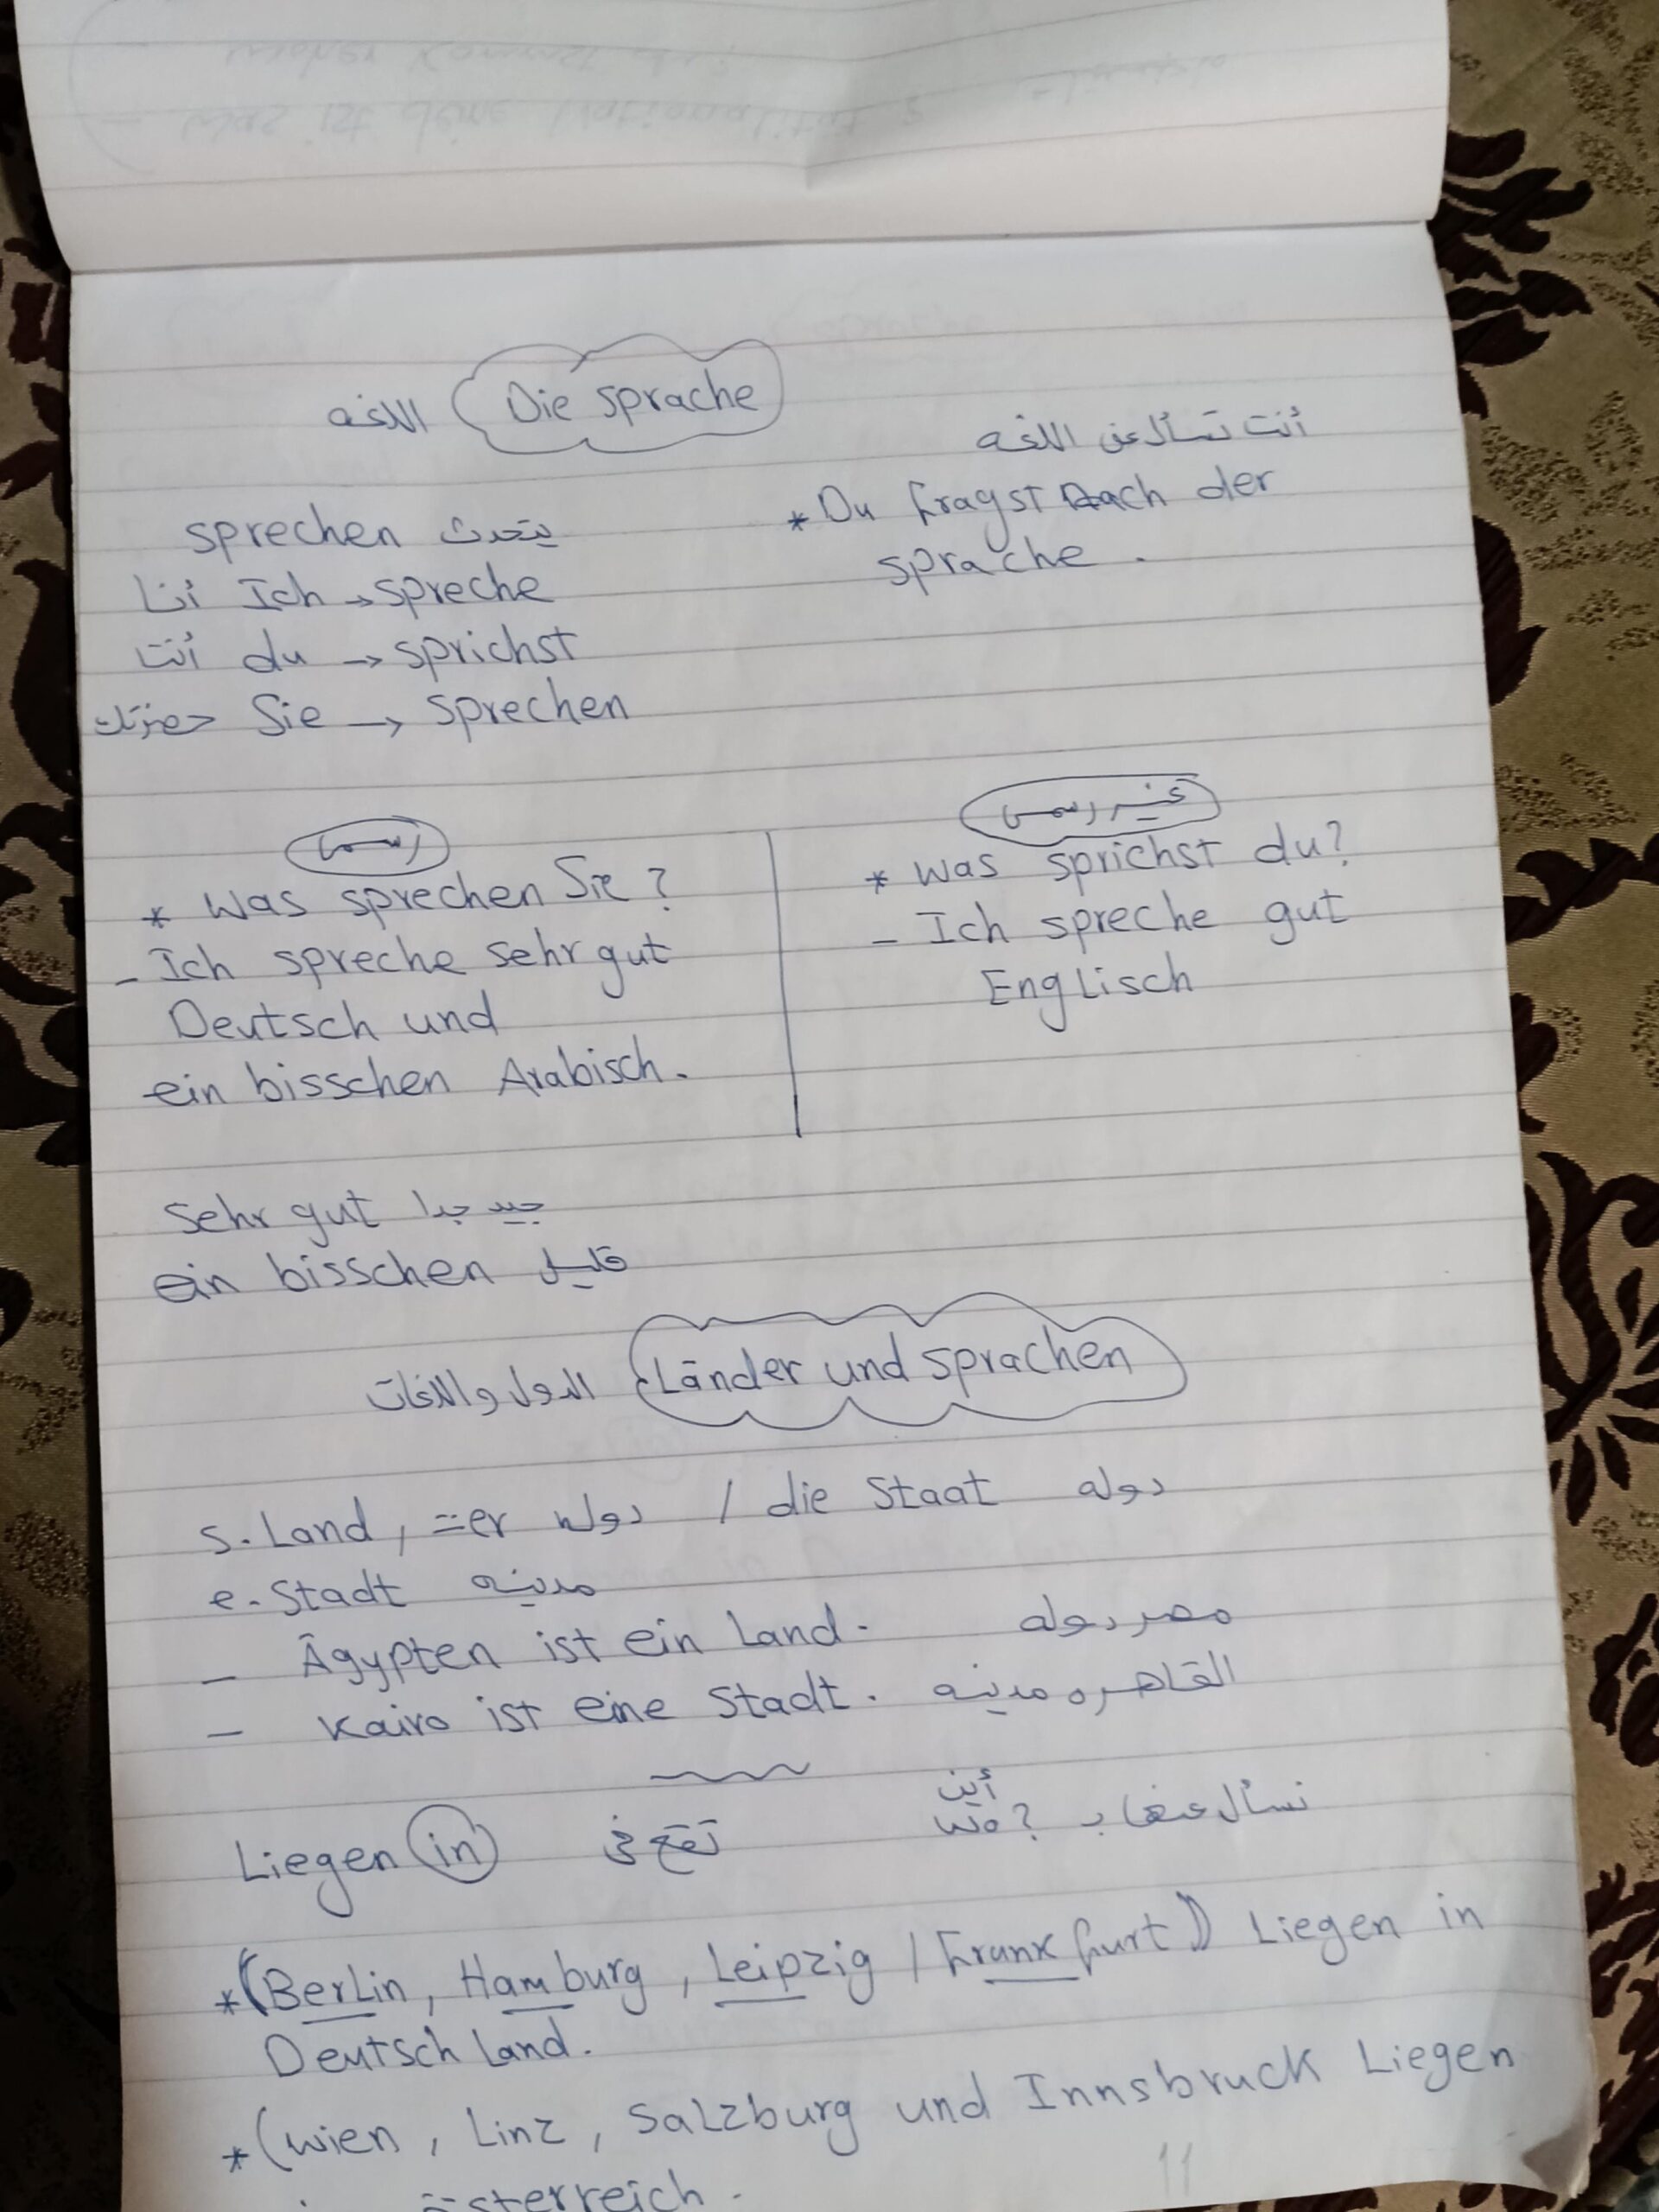 اللغه Die sprache
أنت تسأل عن اللغه
* Du fragst nach der
sprache .
sprechen يتحدث
أنا Ich → spreche
أنت du → sprichst
حضرتك Sie → sprechen
رسمى
* Was sprechen Sie ?
- Ich spreche sehr gut
Deutsch und
ein bisschen Arabisch.
غير رسمى
* Was sprichst du?
- Ich spreche gut
Englisch
Sehr gut جيد جدا
ein bisschen قليل
الدول واللغات Länder und sprachen
s. Land, ⸚er دوله / die Staat دوله
e. Stadt مدينه
- Ägypten ist ein Land. مصر دوله
- Kairo ist eine Stadt. القاهره مدينه
Liegen in تقع في نسأل عنها ب wo ? أين
*(Berlin, Hamburg, Leipzig / Frankfurt) Liegen in
Deutschland.
*(wien, Linz, Salzburg und Innsbruck Liegen
österreich.
11